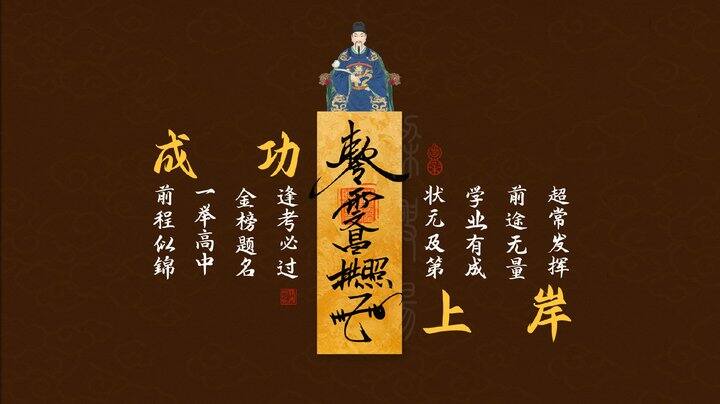 成功
超常发挥
前途无量
学业有成
状元及第
逢考必过
金榜题名
一举高中
前程似錦
上岸